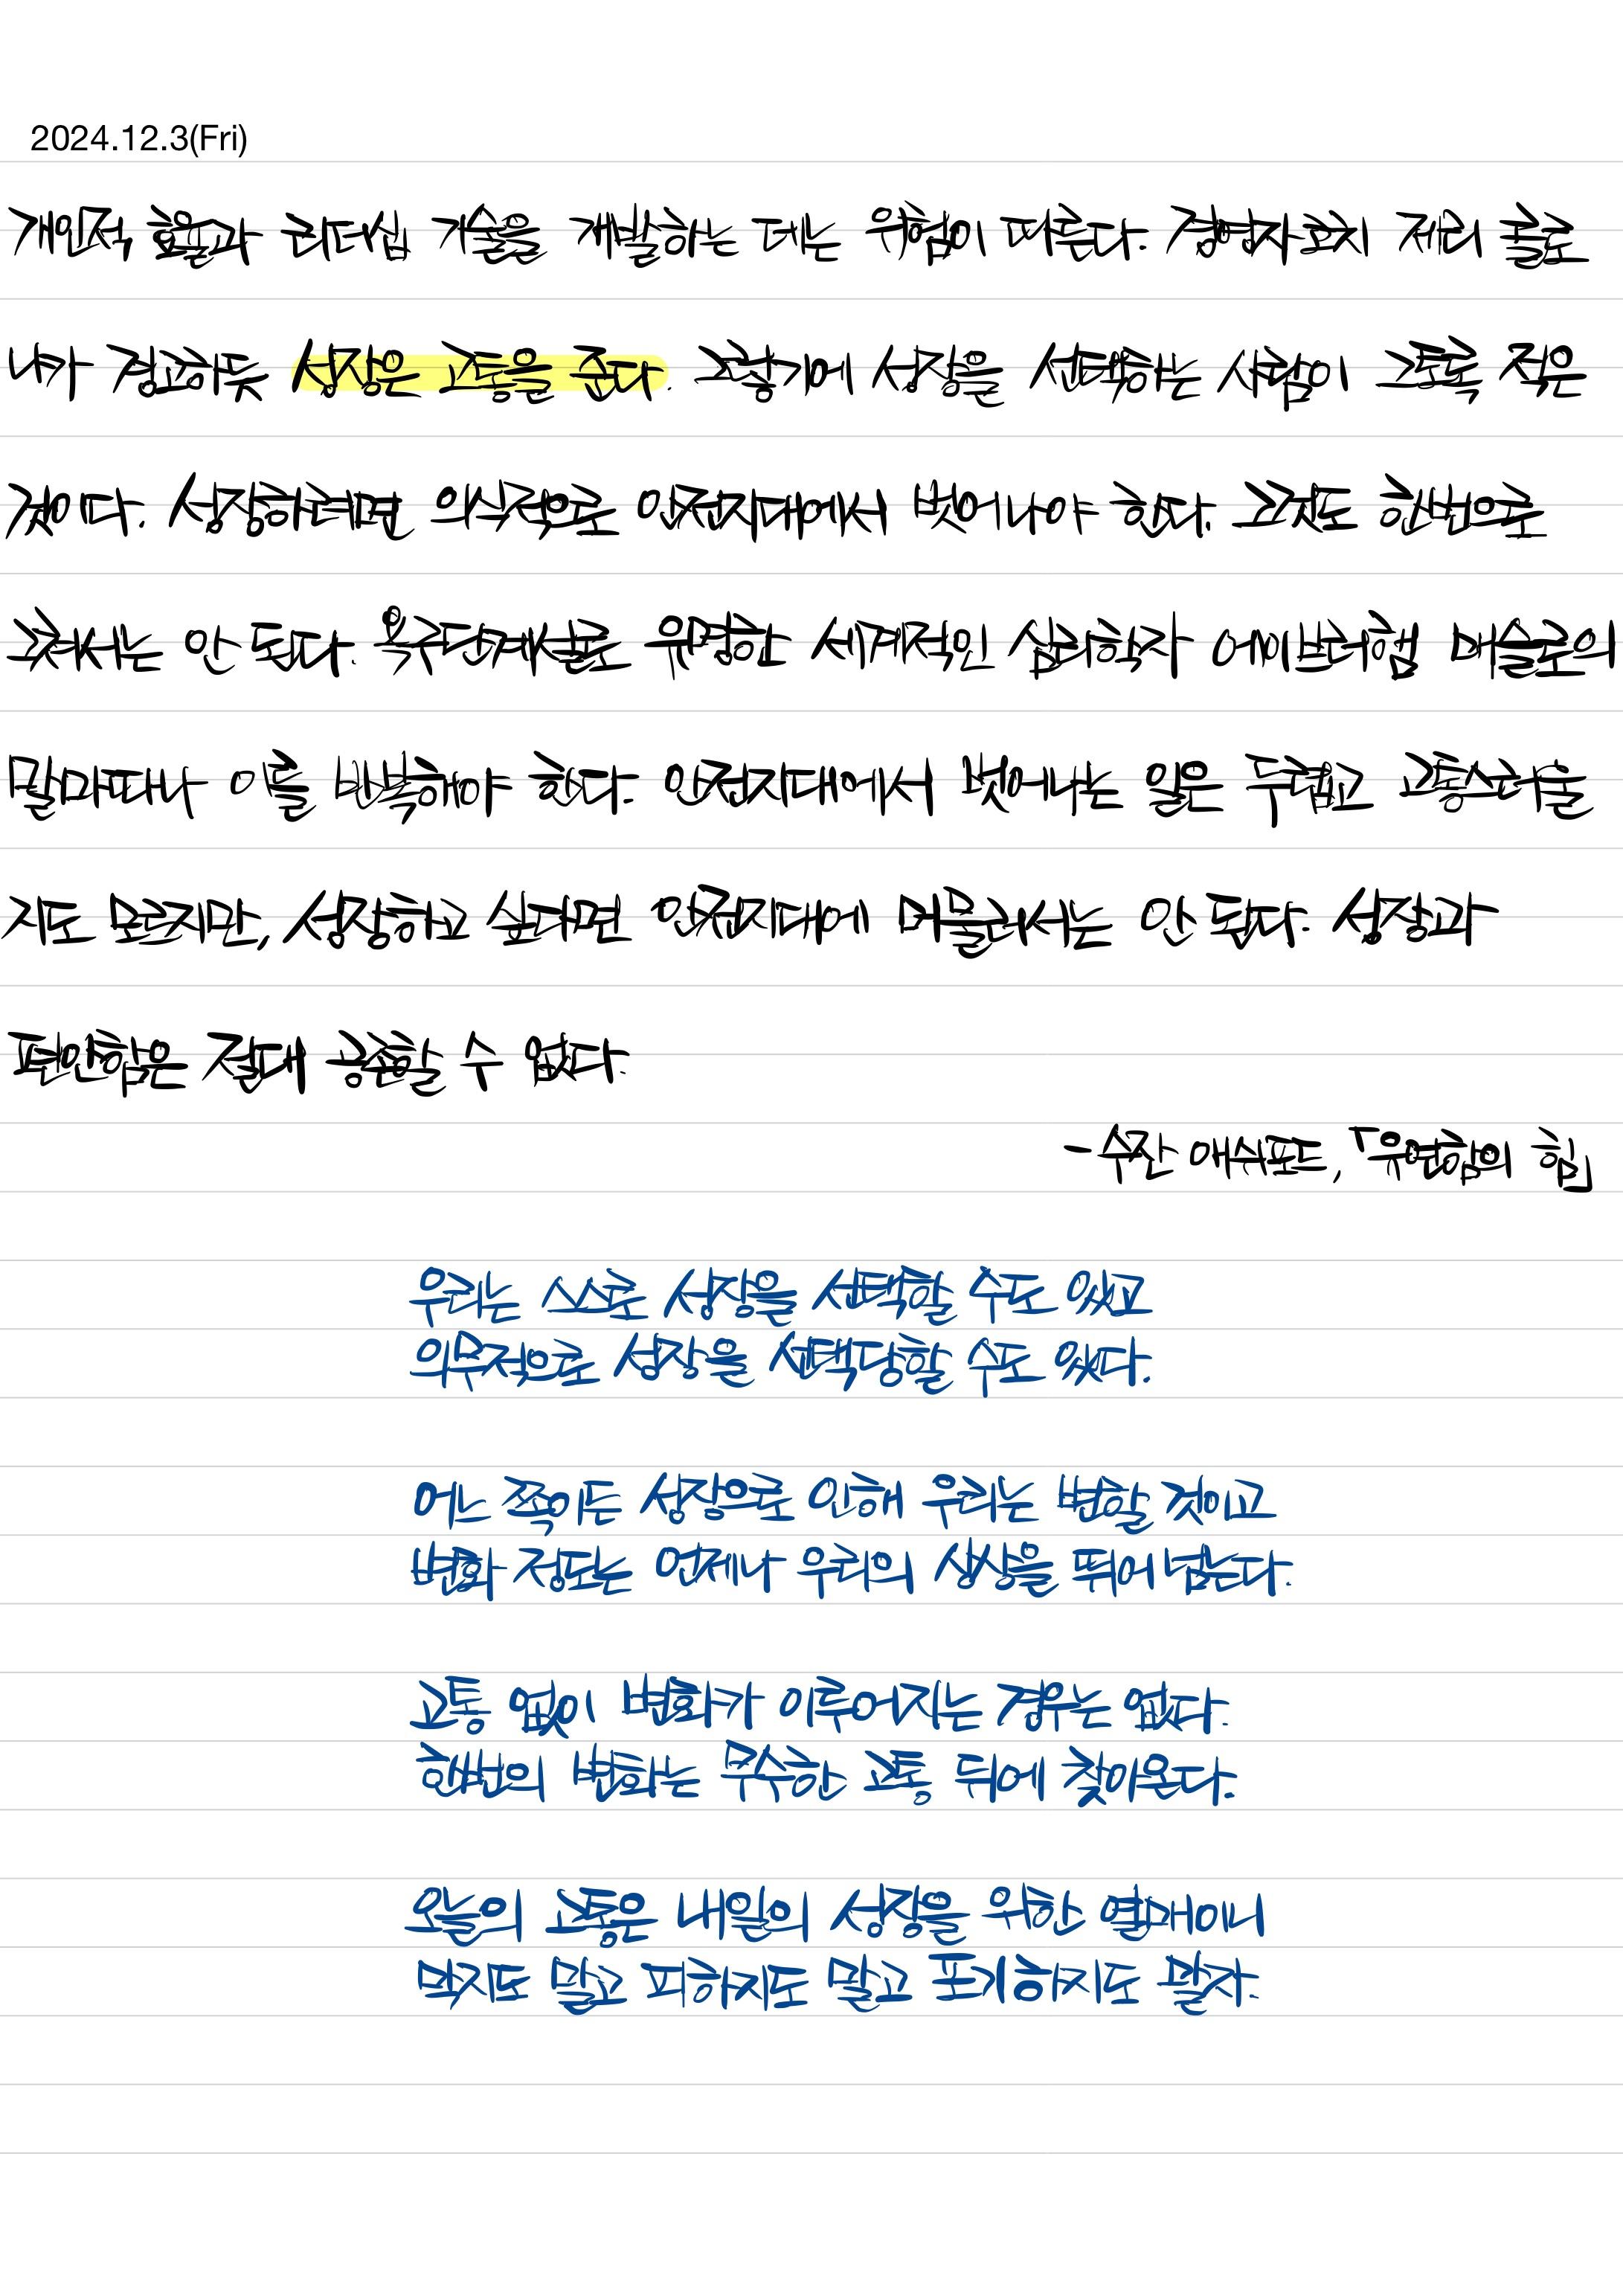 2024.12.3(Fri)
개인적 효율과 리더십 기술을 개발하는 데는 위험이 따른다. 경영자코치 제리 콜로
나가 경고하듯 성장은 고통을 준다. 그렇기에 성장을 선택하는 사람이 그토록 적은
것이다. 성장하려면 의식적으로 안전지대에서 벗어나야 한다. 그것도 한번으로
그쳐서는 안 된다. 욕구단계설로 유명한 세계적인 심리학자 에이브러햄 매슬로의
말마따나 이를 반복해야 한다. 안전지대에서 벗어나는 일은 두렵고 고통스러울
지도 모르지만, 성장하고 싶다면 안전지대에 머물러서는 안 된다. 성장과
편안함은 절대 공존할 수 없다.
- 수잔 애쉬포드, 「유연함의 힘」
우리는 스스로 성장을 선택할 수도 있고
의무적으로 성장을 선택당할 수도 있다.
어느 쪽이든 성장으로 인해 우리는 변할 것이고
변화 정도는 언제나 우리의 상상을 뛰어 넘는다.
고통 없이 변화가 이루어지는 경우는 없다.
한번의 변화는 무수한 고통 뒤에 찾아온다.
오늘의 고통은 내일의 성장을 위한 열매이니
막지도 말고 피하지도 말고 포기하지도 말자.